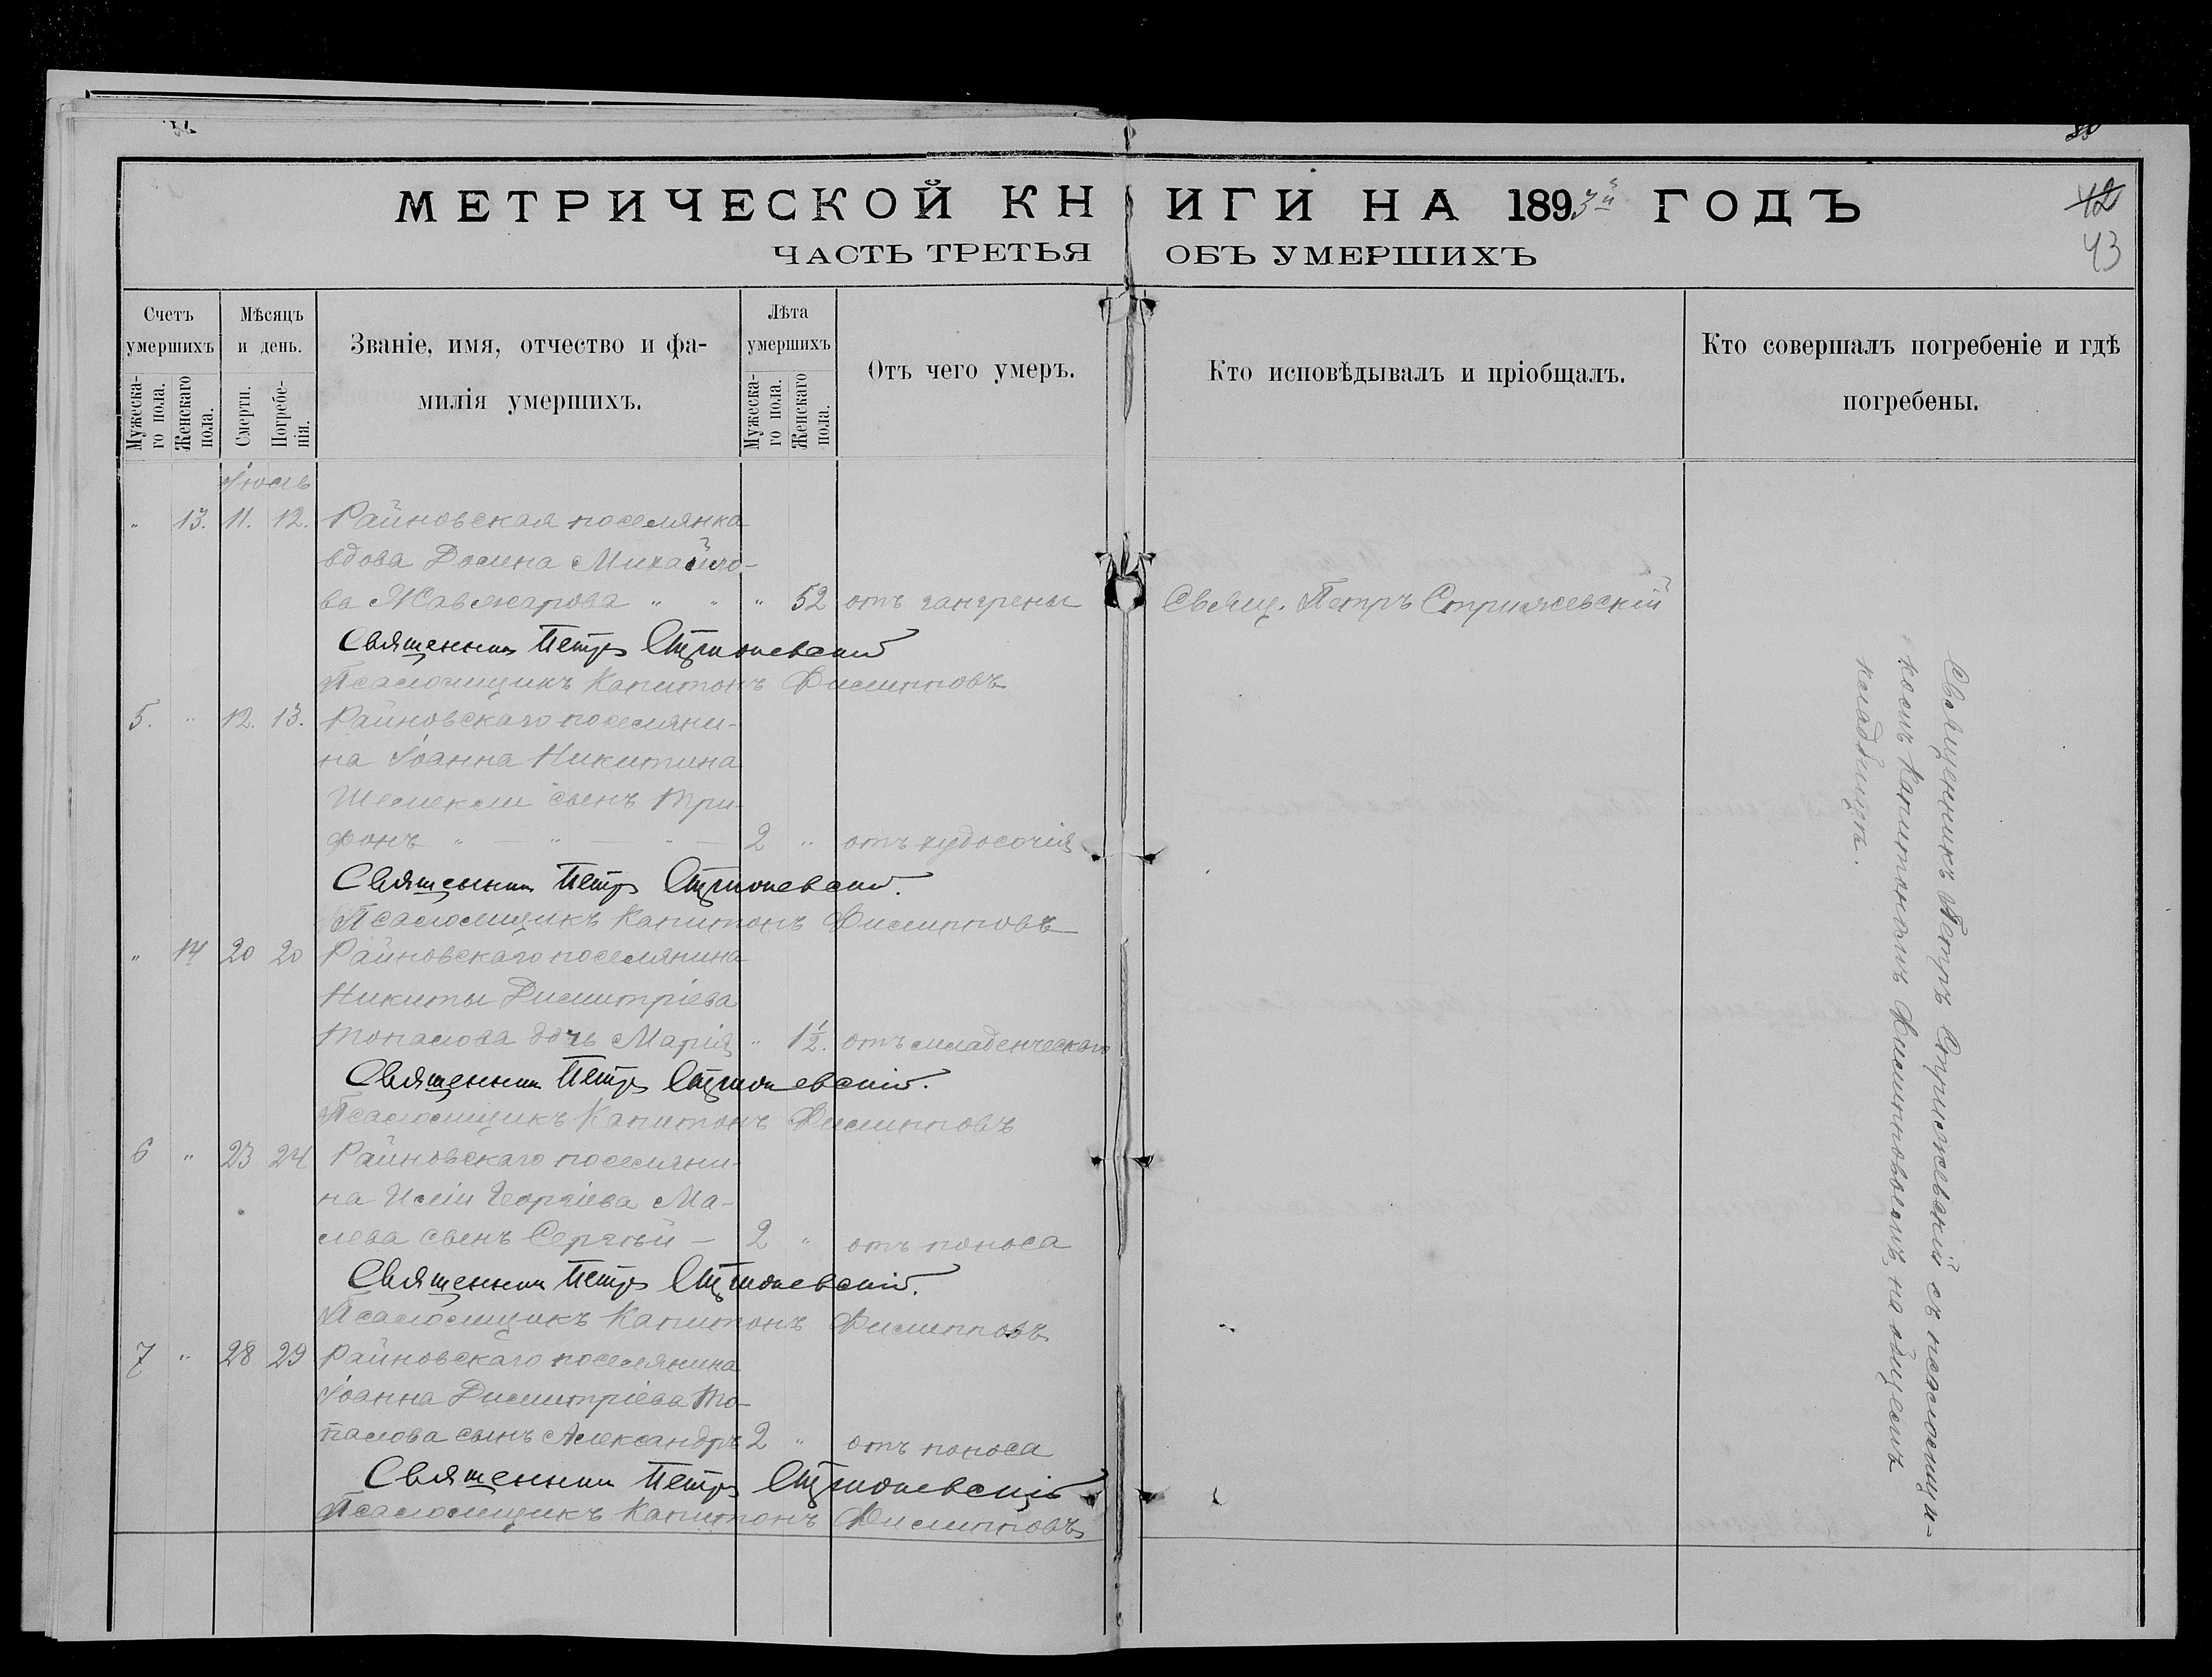 МЕТРИЧЕСКОЙ КНИГИ НА 1893й ГОДЪ
42
43
ЧАСТЬ ТРЕТЬЯ ОБЪ УМЕРШИХЪ
Счетъ умершихъ
Мужеска-го пола.
Женскаго пола.
Мѣсяцъ и день.
Смерти.
Погребе-нія.
Званіе, имя, отчество и фа-
милія умершихъ.
Лѣта умершихъ
Мужеска-го пола.
Женскаго пола.
Отъ чего умеръ.
Кто исповѣдывалъ и пріобщалъ.
Кто совершалъ погребеніе и гдѣ
погребены.
Іюль
" 13. 11. 12. Райновская поселянка
вдова Домна Михайло-
ва " " " 52 отъ гангрены Свящ. Петръ Стрижевскій
Священникъ Петръ Стрижевскій
Псаломщикъ Капитонъ Филипповъ
5. " 12. 13. Райновскаго поселяни-
на Іоанна Никитина
Шелекли сынъ Три-
фонъ " — " — " — 2 " отъ худосочія
Священникъ Петръ Стрижевскій.
Псаломщикъ Капитонъ Филипповъ
" 14 20 20 Райновскаго поселянина
Никиты Димитріева
Топалова дочь Марія " 1½. отъ младенческаго
Священникъ Петръ Стрижевскій.
Псаломщикъ Капитонъ Филипповъ
6 " 23 24 Райновскаго поселяни-
на Иліи Георгіева Ма-
лева сынъ Сергѣй — 2 " отъ поноса
Священникъ Петръ Стрижевскій.
Псаломщикъ Капитонъ Филипповъ
7 " 28 29 Райновскаго поселянина
Іоанна Димитріева То-
палова сынъ Александръ 2 " отъ поноса
Священникъ Петръ Стрижевскій
Псаломщикъ Капитонъ Филипповъ
Священникъ Петръ Стрижевскій съ псаломщи-
комъ Капитономъ Филипповымъ, на общемъ
кладбищѣ.